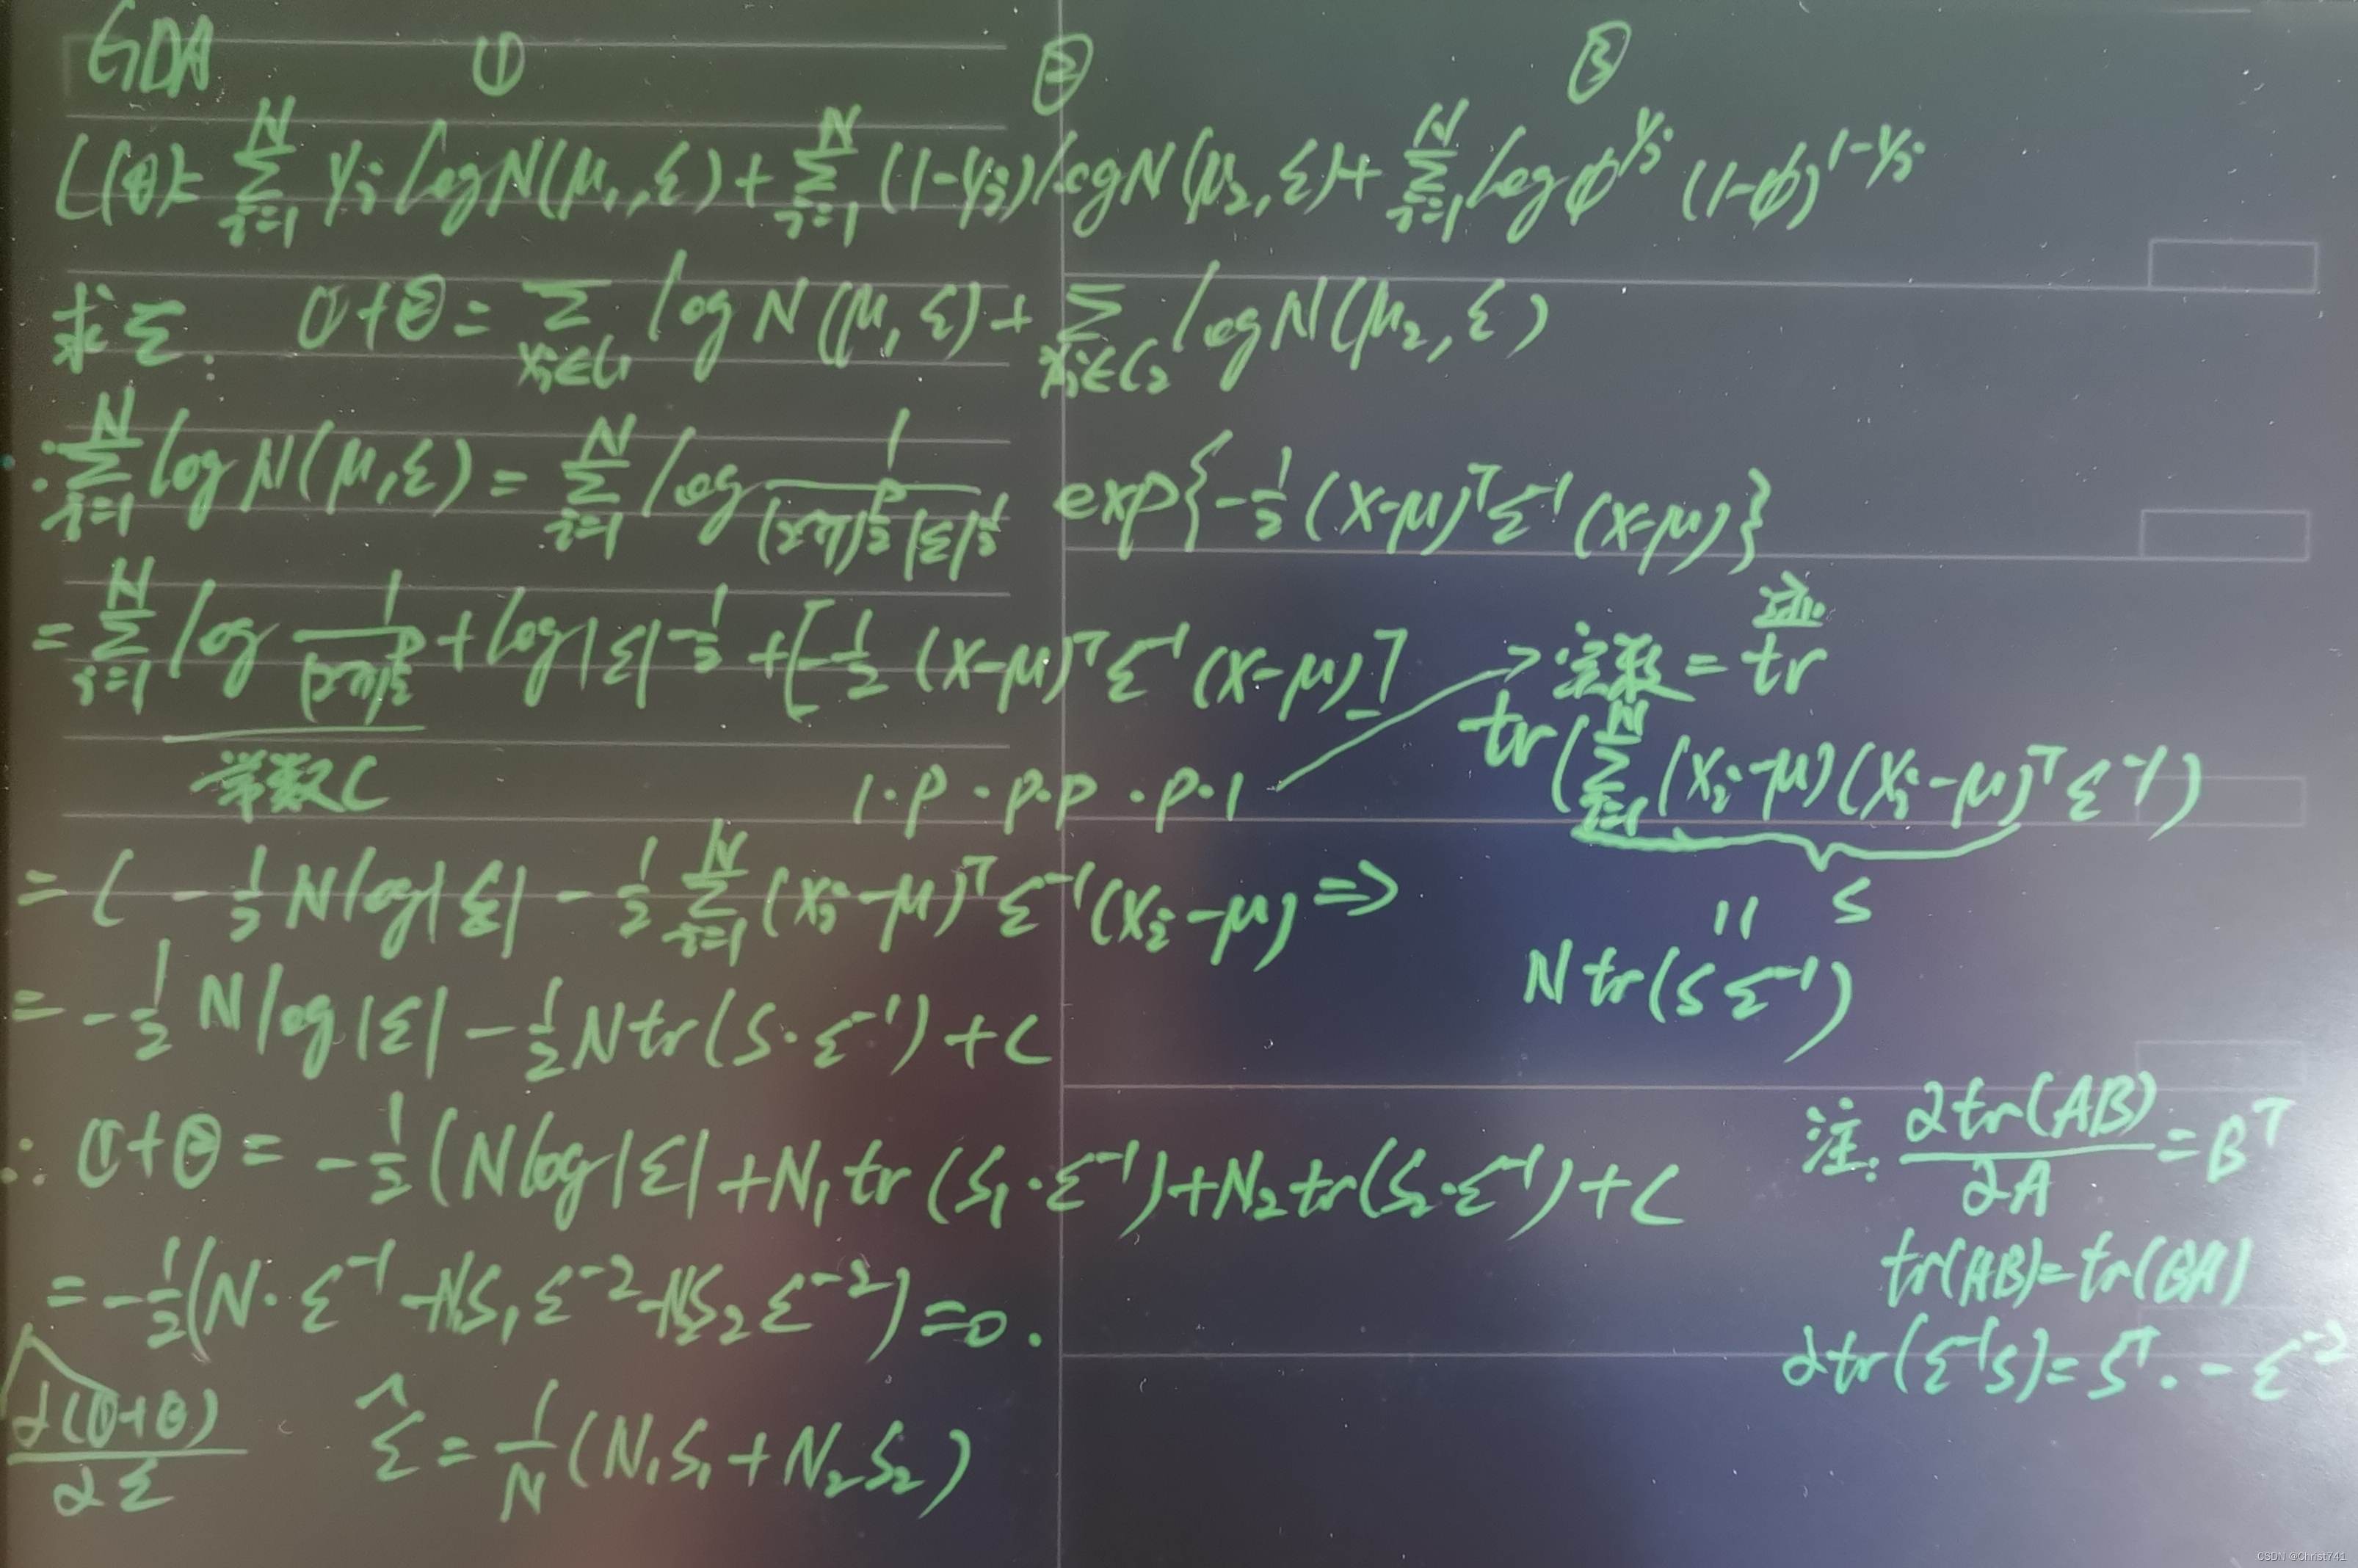 GDA ① ② ③
L(θ)= ∑_{i=1}^{N} y_i log N(μ_1, Σ) + ∑_{i=1}^{N} (1-y_i) log N(μ_2, Σ) + ∑_{i=1}^{N} log φ^{y_i} (1-φ)^{1-y_i}
求Σ: ①+② = ∑_{x_i∈C_1} log N(μ_1, Σ) + ∑_{x_i∈C_2} log N(μ_2, Σ)
∵ ∑_{i=1}^{N} log N(μ, Σ) = ∑_{i=1}^{N} log 1/((2π)^{p/2} |Σ|^{1/2}) exp{-1/2 (x-μ)^T Σ^{-1} (x-μ)}
= ∑_{i=1}^{N} log 1/(2π)^{p/2} + log|Σ|^{-1/2} + [-1/2 (x-μ)^T Σ^{-1} (x-μ)]
常数C
1·p · p·p · p·1 → 实数 = tr
迹
tr(∑_{i=1}^{N} (x_i-μ)(x_i-μ)^T Σ^{-1})
S
= C - 1/2 N log|Σ| - 1/2 ∑_{i=1}^{N} (x_i-μ)^T Σ^{-1} (x_i-μ) ⇒
||
N tr(S Σ^{-1})
= -1/2 N log|Σ| - 1/2 N tr(S·Σ^{-1}) + C
∴ ①+② = -1/2 (N log|Σ| + N_1 tr(S_1·Σ^{-1}) + N_2 tr(S_2·Σ^{-1}) + C
注: ∂tr(AB)/∂A = B^T
tr(AB)=tr(BA)
∂tr(Σ^{-1}S) = S^T · -Σ^{-2}
= -1/2 (N·Σ^{-1} - N_1S_1Σ^{-2} - N_2S_2Σ^{-2}) = 0.
∂(①+②)/∂Σ
Σ̂ = 1/N (N_1S_1 + N_2S_2)
CSDN @Christ741